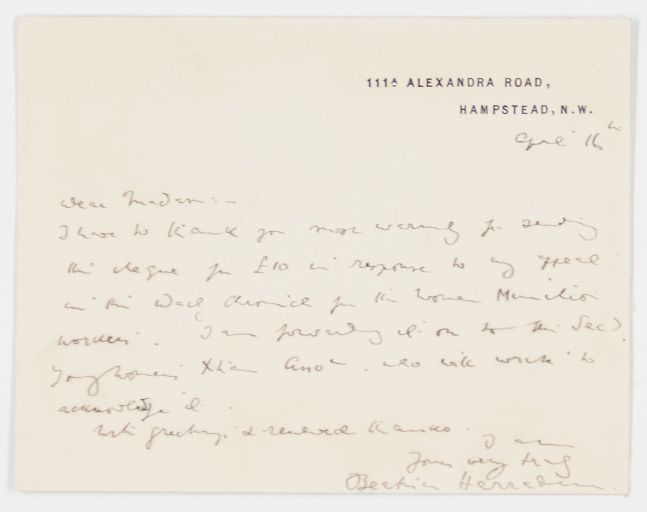 111A ALEXANDRA ROAD,
HAMPSTEAD, N.W.
April 16th
Dear Madam:-
I have to thank you most warmly for sending
this cheque for £10 in response to my appeal
in the Daily Chronicle for the Women Munition
workers. I am forwarding it on to the Secy.
Young Women's Xtian Assocn. who will write to
acknowledge it.
With greetings & renewed thanks.
I am
Yours very truly
Beatrice Harraden.